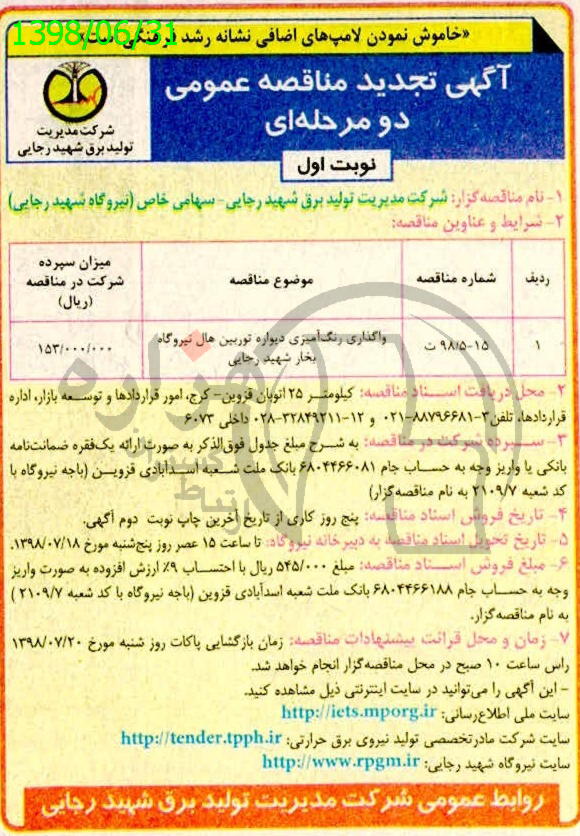 1398/06/31
«خاموش نمودن لامپ‌های اضافی نشانه رشد فرهنگی است»
آگهی تجدید مناقصه عمومی
دو مرحله‌ای
شرکت مدیریت
تولید برق شهید رجایی
نوبت اول
۱- نام مناقصه‌گزار: شرکت مدیریت تولید برق شهید رجایی- سهامی خاص (نیروگاه شهید رجایی)
۲- شرایط و عناوین مناقصه:
ردیف	شماره مناقصه	موضوع مناقصه	میزان سپرده شرکت در مناقصه (ریال)
۱	۹۸/۵-۱۵ ت	واگذاری رنگ‌آمیزی دیواره توربین هال نیروگاه بخار شهید رجایی	۱۵۳/۰۰۰/۰۰۰
۲- محل دریافت اسناد مناقصه: کیلومتر ۲۵ اتوبان قزوین- کرج، امور قراردادها و توسعه بازار، اداره
قراردادها، تلفن۳-۸۸۷۹۶۶۸۱-۰۲۱ و ۱۲-۳۲۸۴۹۲۱۱-۰۲۸ داخلی ۶۰۷۳
۳- سپرده شرکت در مناقصه: به شرح مبلغ جدول فوق‌الذکر به صورت ارائه یک‌فقره ضمانت‌نامه
بانکی یا واریز وجه به حساب جام ۶۸۰۴۴۶۶۰۸۱ بانک ملت شعبه اسدآبادی قزوین (باجه نیروگاه با
کد شعبه ۲۱۰۹/۷ به نام مناقصه‌گزار)
۴- تاریخ فروش اسناد مناقصه: پنج روز کاری از تاریخ آخرین چاپ نوبت دوم آگهی.
۵- تاریخ تحویل اسناد مناقصه به دبیرخانه نیروگاه: تا ساعت ۱۵ عصر روز پنج‌شنبه مورخ ۱۳۹۸/۰۷/۱۸.
۶- مبلغ فروش اسناد مناقصه: مبلغ ۵۴۵/۰۰۰ ریال با احتساب ۹٪ ارزش افزوده به صورت واریز
وجه به حساب جام ۶۸۰۴۴۶۶۱۸۸ بانک ملت شعبه اسدآبادی قزوین (باجه نیروگاه با کد شعبه ۲۱۰۹/۷ )
به نام مناقصه‌گزار.
۷- زمان و محل قرائت پیشنهادات مناقصه: زمان بازگشایی پاکات روز شنبه مورخ ۱۳۹۸/۰۷/۲۰
راس ساعت ۱۰ صبح در محل مناقصه‌گزار انجام خواهد شد.
- این آگهی را می‌توانید در سایت اینترنتی ذیل مشاهده کنید.
سایت ملی اطلاع‌رسانی: http://iets.mporg.ir
سایت شرکت مادرتخصصی تولید نیروی برق حرارتی: http://tender.tpph.ir
سایت نیروگاه شهید رجایی: http://www.rpgm.ir
روابط عمومی شرکت مدیریت تولید برق شهید رجایی